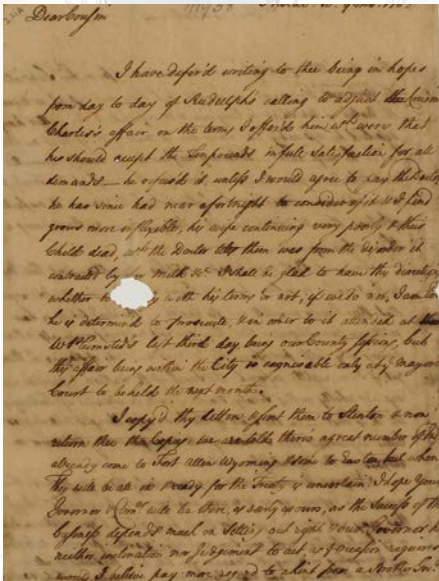 Dear Cousin
I have defer'd writing to thee being in hopes
from day to day of Rudolph's calling to adjust Cousin
Charles's affair on the terms I offer'd him wch were that
he should accept the Ten pounds in full satisfaction for all
demands — he refuses it unless I would agree to pay the Doctor
he has since had near a fortnight to consider of it & I find
grows more inflexible, his wife continuing very poorly & their
Child dead, wch the Doctor tells them was from the disorder it
contracted by her Milk &c. I shall be glad to have thy direction
whether to with his terms or not, if we do not, I am
he is determined to prosecute, & in order to it attended at
Wm Plumsted's last third day being our County Sessions, but
this affair being within the City is cognisable only at ye Mayors
Court to be held the next month.
I copy'd thy letters & sent them to Stenton & now
return thee the Copys we are told there is a great number of
already come to Fort Allen Wyoming & some to Easton but when
they will be all ready for the Treaty is uncertain. I hope your
Governor & will be there, as early as ours, as the Success of the
Business depends much on
neither inclination nor judgement to act, as ye occasion requires
I believe pay more regard to a hint from a